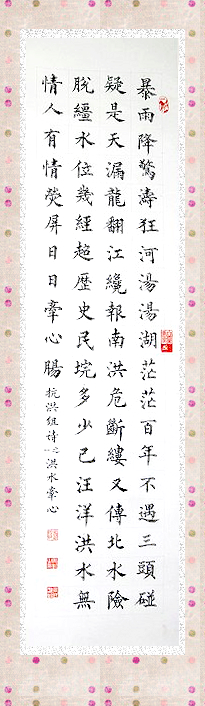 暴雨降驚濤狂河湯湯湖茫茫百年不遇三頭碰
疑是天漏龍翻江纔報南洪危斷縷又傳北水險
脫繮水位幾經超歷史民垸多少已汪洋洪水無
情人有情熒屏日日牽心腸
抗洪組詩之洪水牽心